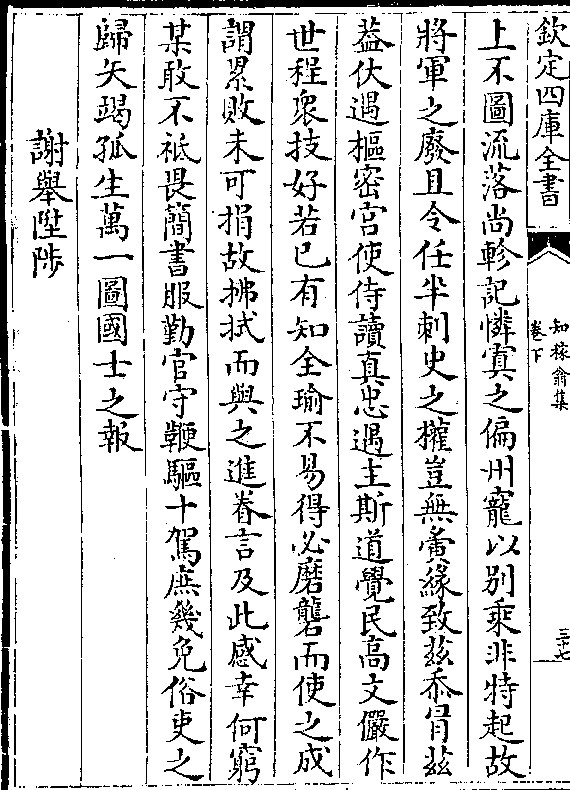 欽定四庫全書
知稼翁集
卷下
三十七
上不圖流落尚軫記憐寘之偏州寵以别乘非特起故
將軍之廢且令任半刺史之權豈無夤緣致兹忝冒兹
葢伏遇樞密宫使侍讀真忠遇主斯道覺民高文儼作
世程衆技好若已有知全瑜不易得必磨礱而使之成
謂累敗未可捐故拂拭而與之進眷言及此感幸何窮
某敢不祗畏簡書服勤官守鞭驅十駕庶幾免俗吏之
歸矢竭孤生萬一圖國士之報
謝舉陞陟